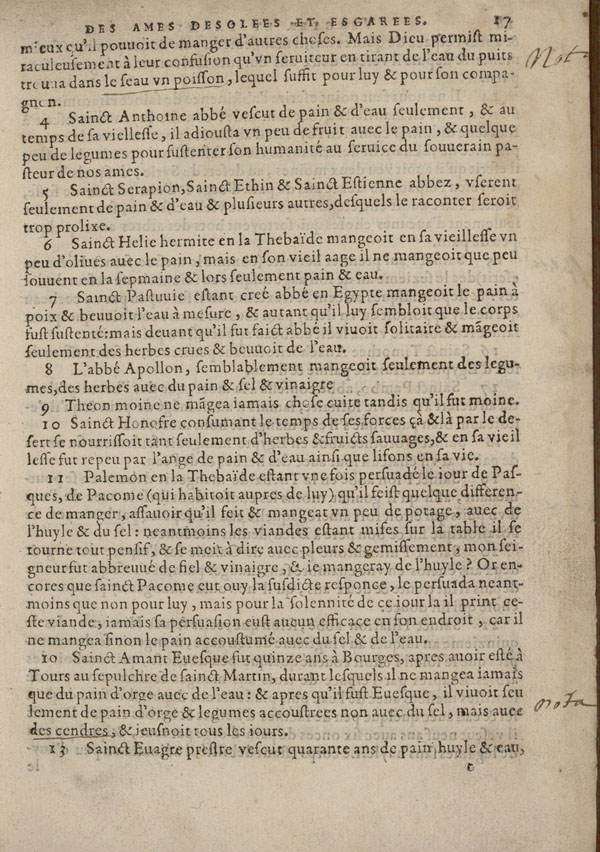 DES AMES DESOLEES ET ESGAREES. 17
mieux qu'il pouuoit de manger d'autres choses. Mais Dieu permist mi-
raculeusement à leur confusion qu'vn seruiteur en tirant de l'eau du puits
trouua dans le seau vn poisson, lequel suffit pour luy & pour son compa-
gnon.
Nota
4 Sainct Anthoine abbé vescut de pain & d'eau seulement, & au
temps de sa viellesse, il adiousta vn peu de fruit auec le pain, & quelque
peu de legumes pour sustenter son humanité au seruice du souuerain pa-
steur de nos ames.
5 Sainct Serapion, Sainct Ethin & Sainct Estienne abbez, vserent
seulement de pain & d'eau & plusieurs autres, desquels le raconter seroit
trop prolixe.
6 Sainct Helie hermite en la Thebaïde mangeoit en sa vieillesse vn
peu d'oliues auec le pain, mais en son vieil aage il ne mangeoit que peu
souuent en la sepmaine & lors seulement pain & eau.
7 Sainct Pastuuie estant creé abbé en Egypte mangeoit le pain à
poix & beuuoit l'eau à mesure, & autant qu'il luy sembloit que le corps
fust sustenté: mais deuant qu'il fut faict abbé il viuoit solitaire & mãgeoit
seulement des herbes crues & beuuoit de l'eau.
8 L'abbé Apollon, semblablement mangeoit seulement des legu-
mes, des herbes auec du pain & sel & vinaigre
9 Theon moine ne mãgea iamais chose cuite tandis qu'il fut moine.
10 Sainct Honofre consumant le temps de ses forces çà & là par le de-
sert se nourrissoit tant seulement d'herbes & fruicts sauuages, & en sa vieil
lesse fut repeu par l'ange de pain & d'eau ainsi que lisons en sa vie.
11 Palemon en la Thebaïde estant vne fois persuadé le iour de Pas-
ques, de Pacome (qui habitoit aupres de luy) qu'il feist quelque differen-
ce de manger, assauoir qu'il feit & mangeat vn peu de potage, auec de
l'huyle & du sel: neantmoins les viandes estant mises sur la table il se
tourne tout pensif, & se meit à dire auec pleurs & gemissement, mon sei-
gneur fut abbreuué de fiel & vinaigre, & ie mangeray de l'huyle? Or en-
cores que sainct Pacome eut ouy la susdicte responce, le persuada neant-
moins que non pour luy, mais pour la solennité de ce iour la il print ce-
ste viande, iamais sa persuasion eust aucun efficace en son endroit, car il
ne mangea sinon le pain accoustumé auec du sel & de l'eau.
10 Sainct Amant Euesque fut quinze ans à Bourges, apres auoir esté à
Tours au sepulchre de sainct Martin, durant lesquels il ne mangea iamais
que du pain d'orge auec de l'eau: & apres qu'il fust Euesque, il viuoit seu
lement de pain d'orge & legumes accoustrees non auec du sel, mais auec
nota
des cendres, & ieusnoit tous les iours.
13 Sainct Euagre prestre vescut quarante ans de pain huyle & eau,